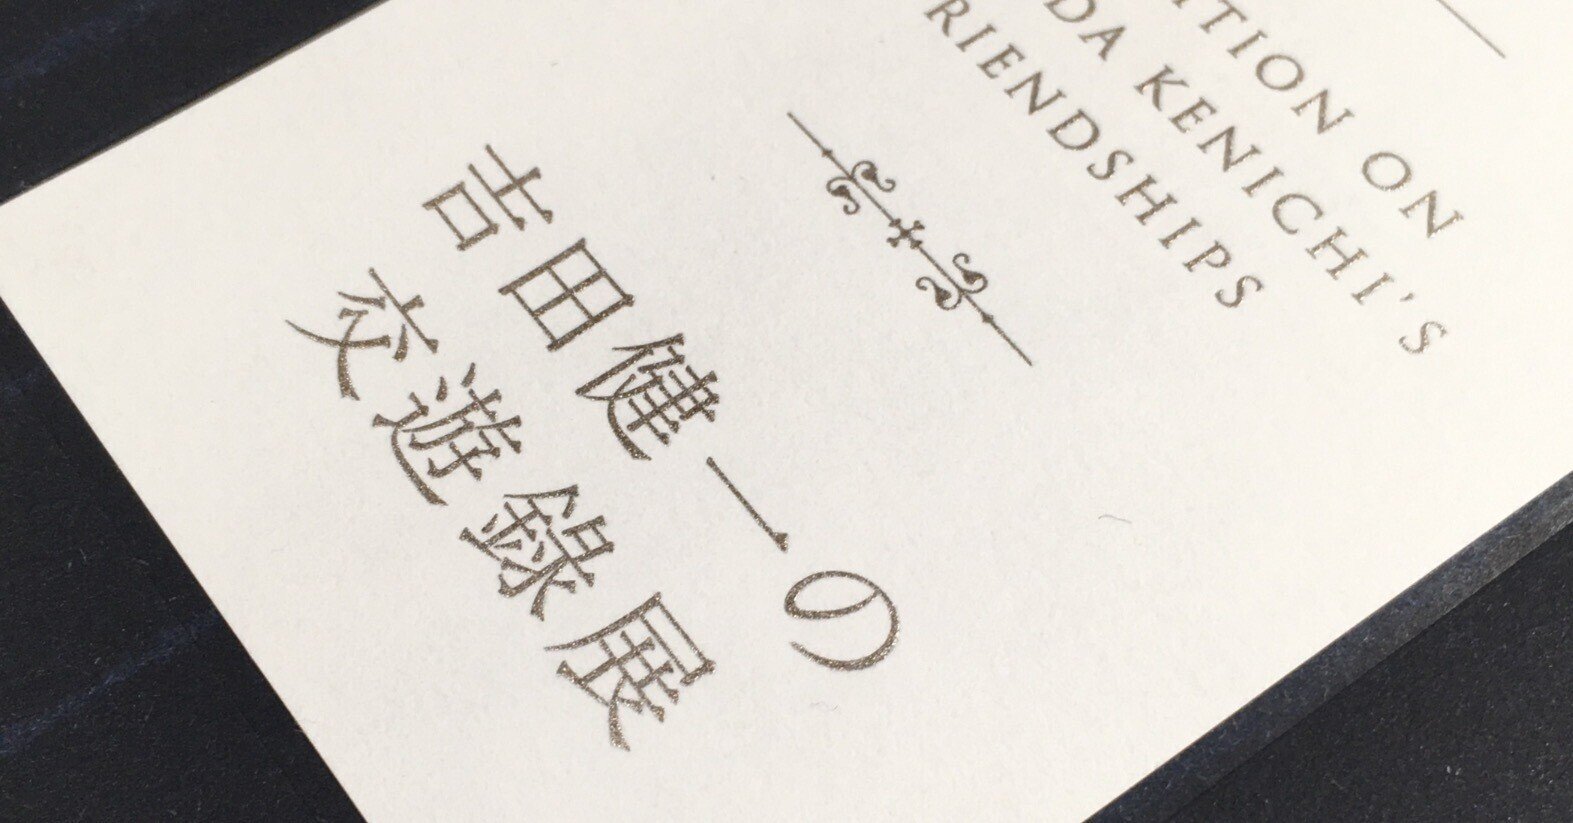 ITION ON
DA KENICHI'S
RIENDSHIPS
吉田健一の
交遊録展